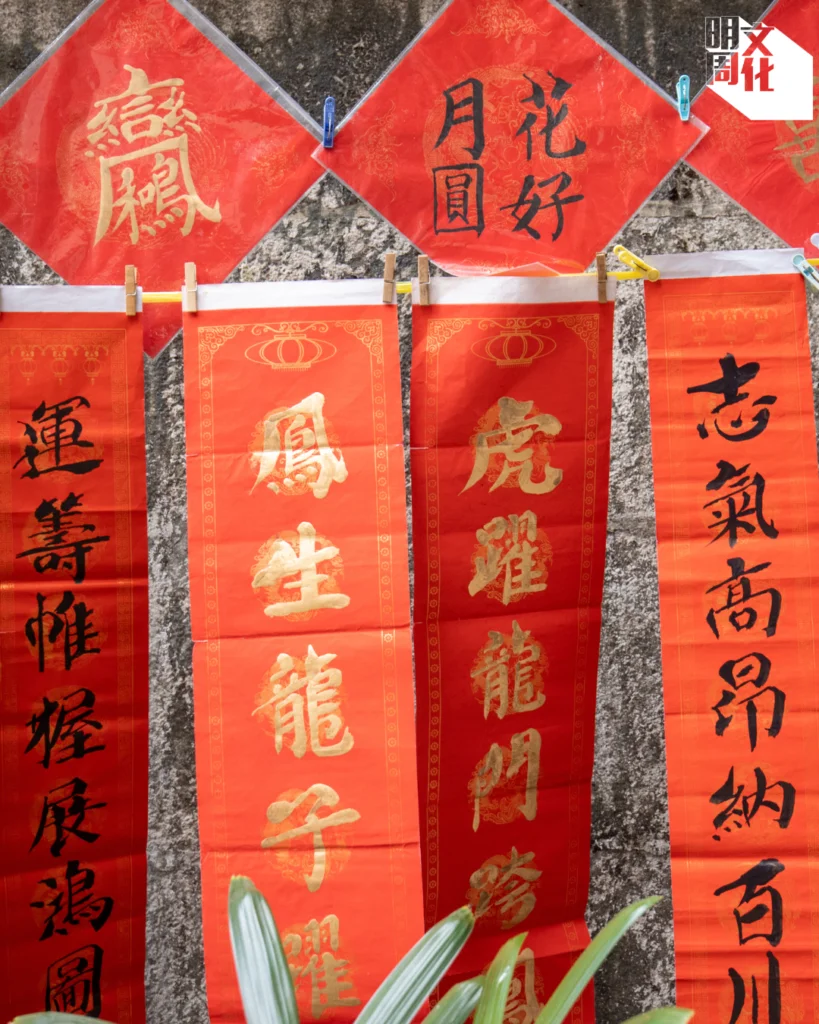 明周
文化
花好
月圓
志氣高昂納百川
虎躍龍門跨鳳
鳳生龍子躍
運籌帷握展鴻圖